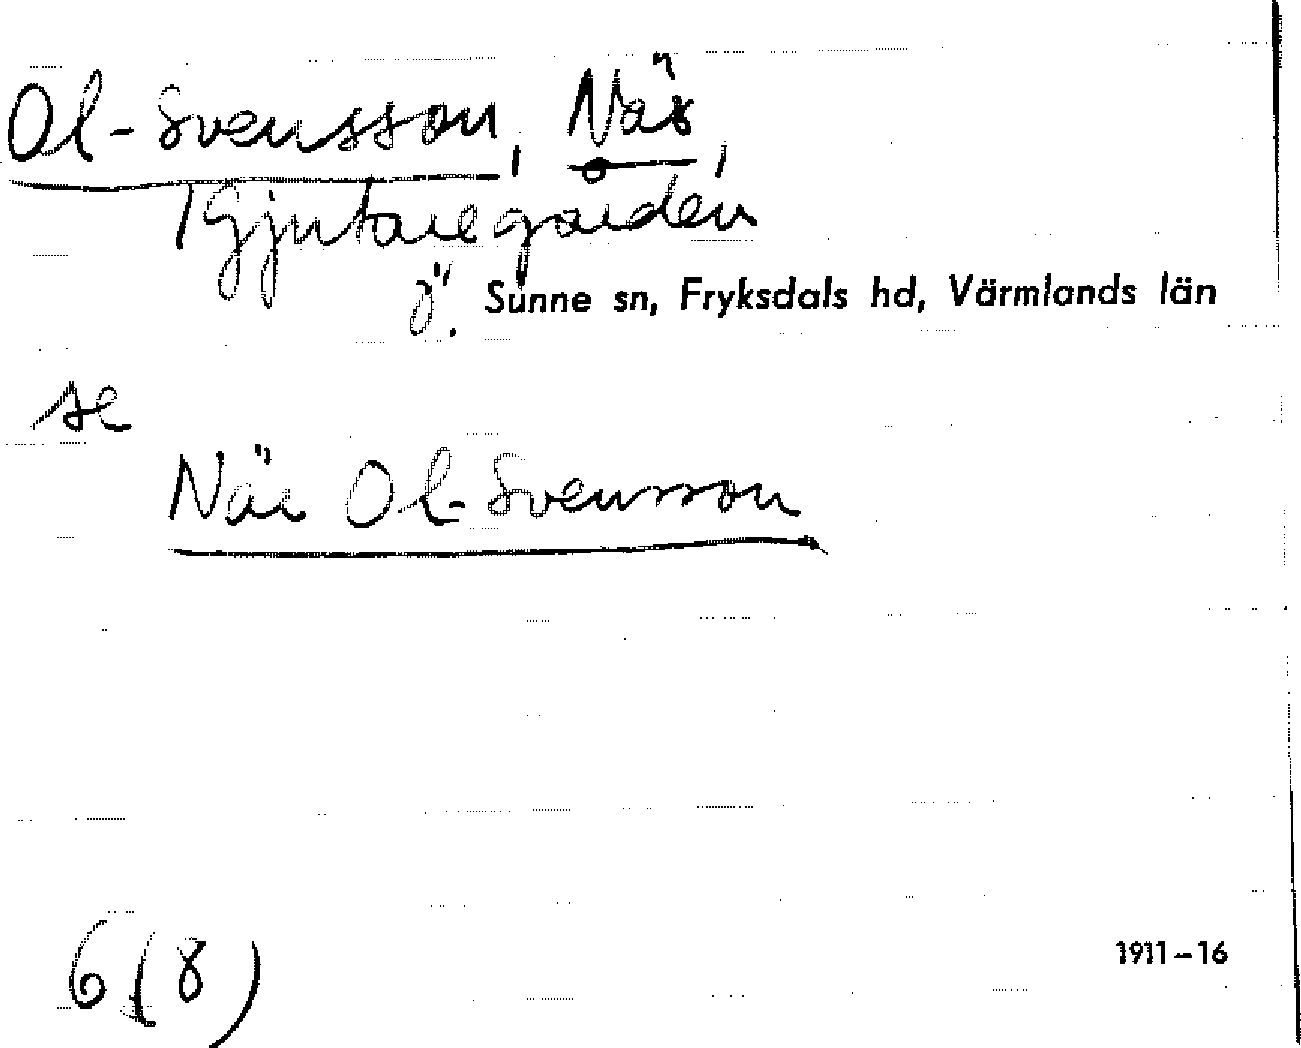 Ol-Svensson, Näs,
Gjutaregården
Ö. Sunne sn, Fryksdals hd, Värmlands län
se
När Ol-Svensson
6 (8)
1911-16